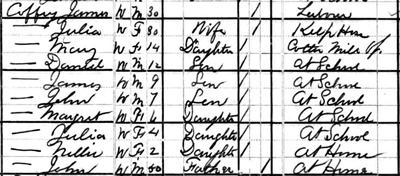 Coffey James W M 30 1 Laborer
— Julia W F 30 Wife 1 Keep Hou
— Mary W F 14 Daughter Cotton Mill Op
— Daniel W M 12 Son At School
— James W M 9 Son At School
— John W M 7 Son At School
— Margret W F 6 Daughter At School
— Julia W F 4 Daughter At School
— Nellie W F 2 Daughter At Home
— John W M 60 Father 1 At Home